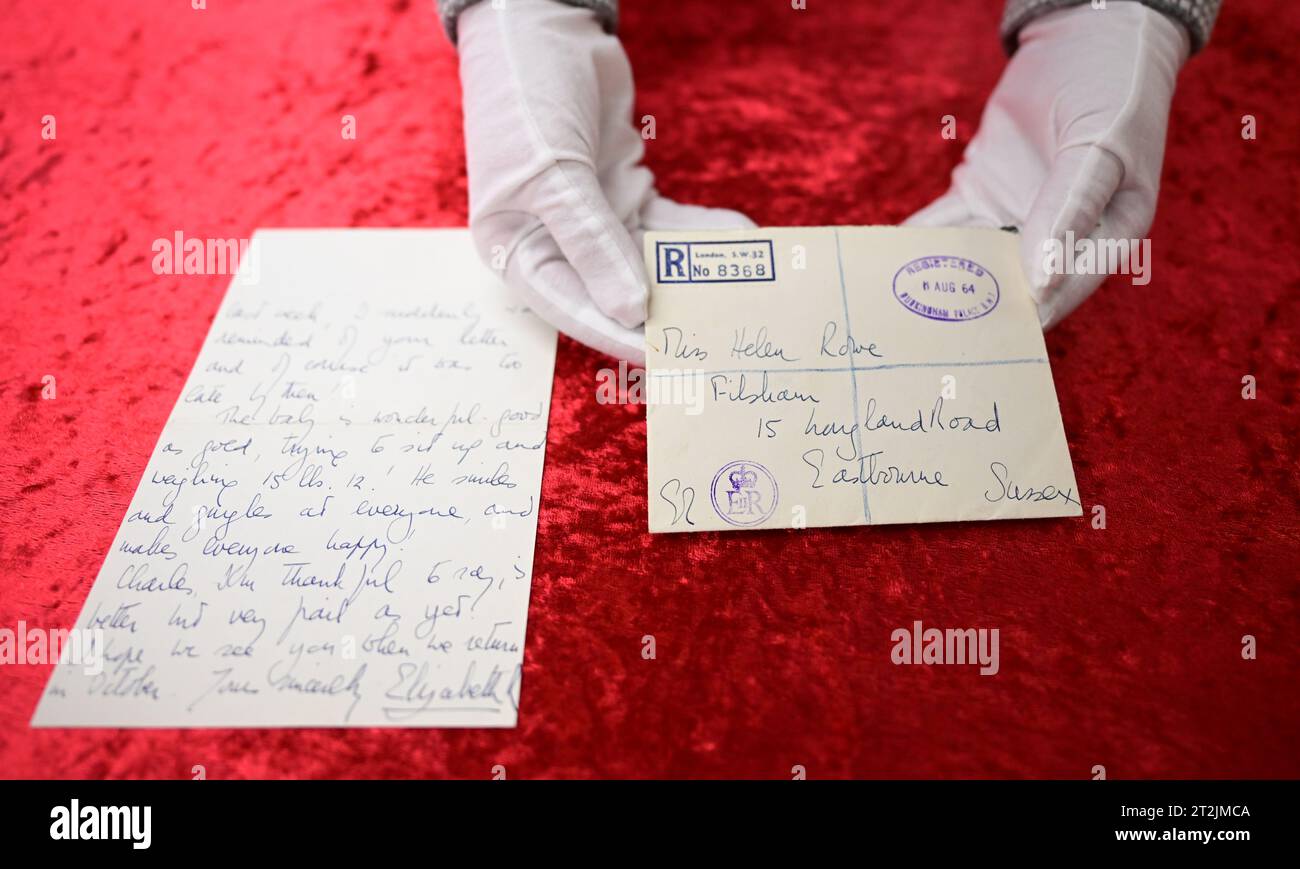 last week, I suddenly
reminded of your letter
and of course it was too
late by then!
The baby is wonderful. good
as gold, trying to sit up and
weighing 15 lbs. 12! He smiles
and gurgles at everyone, and
makes everyone happy!
Charles, I'm thankful to say, is
better but very pail as yet.
I hope we see you when we return
in October. Yours sincerely Elizabeth R
R London, S.W.32
No 8368
REGISTERED
AUG 64
BUCKINGHAM PALACE S.W.1
Miss Helen Rowe
Filsham
15 Longland Road
Eastbourne
Sussex
ER
EIIR
a
alamy
alamy
Image ID: 2T2JMCA
www.alamy.com